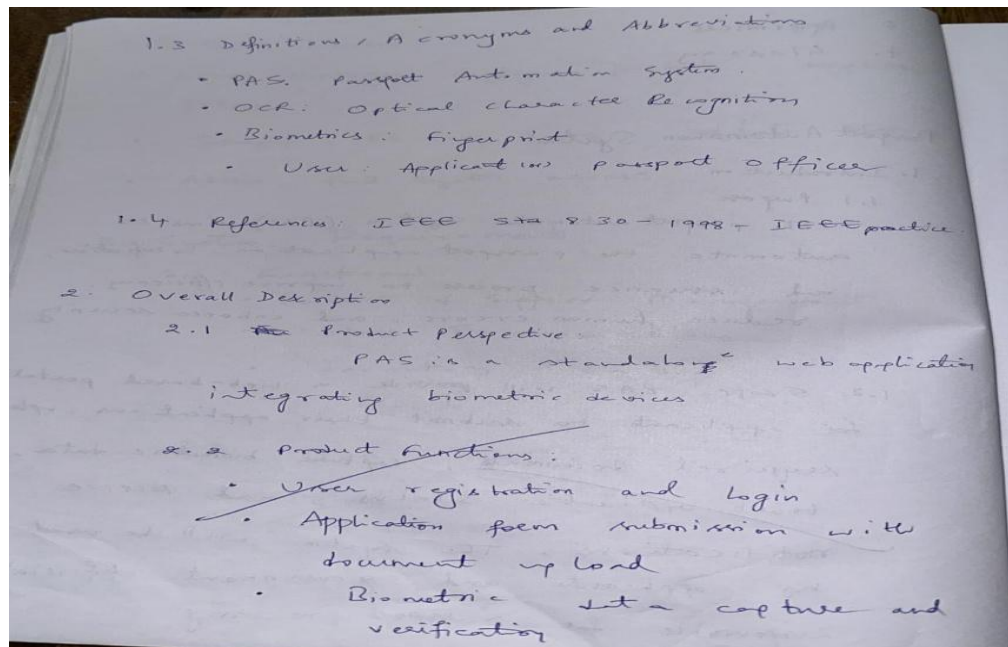 1.3 Definitions, Acronyms and Abbreviations
• PAS. Passpott Automation System.
• OCR: Optical Character Recognition
• Biometrics: Fingerprint
• User: Applicant (or) passport officer
1.4 References: IEEE Std 830-1998- IEEE practice.
2. Overall Description
2.1 Product Perspective
PAS is a standalone web application
integrating biometric devices
2.2 Product Functions:
• User registration and Login
• Application form submission with
document upload
• Biometric data capture and
verification